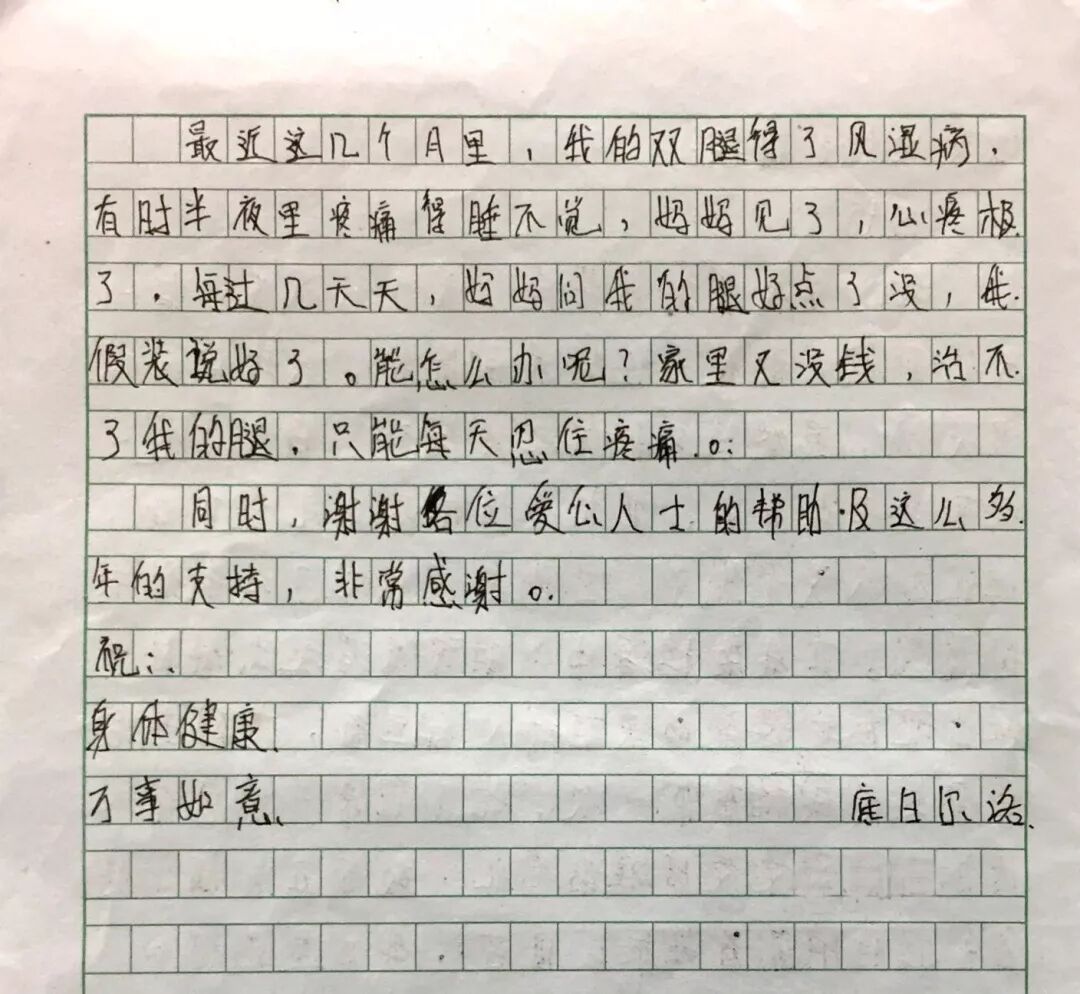 最近这几个月里，我的双腿得了风湿病．
有时半夜里疼痛得睡不觉，妈妈见了，心疼极
了．每过几天天，妈妈问我的腿好点了没，我
假装说好了。能怎么办呢？家里又没钱，治不
了我的腿．只能每天忍住疼痛。
同时，谢谢各位爱心人士的帮助及这么多
年的支持，非常感谢。
祝：
身体健康
万事如意 日尔洛